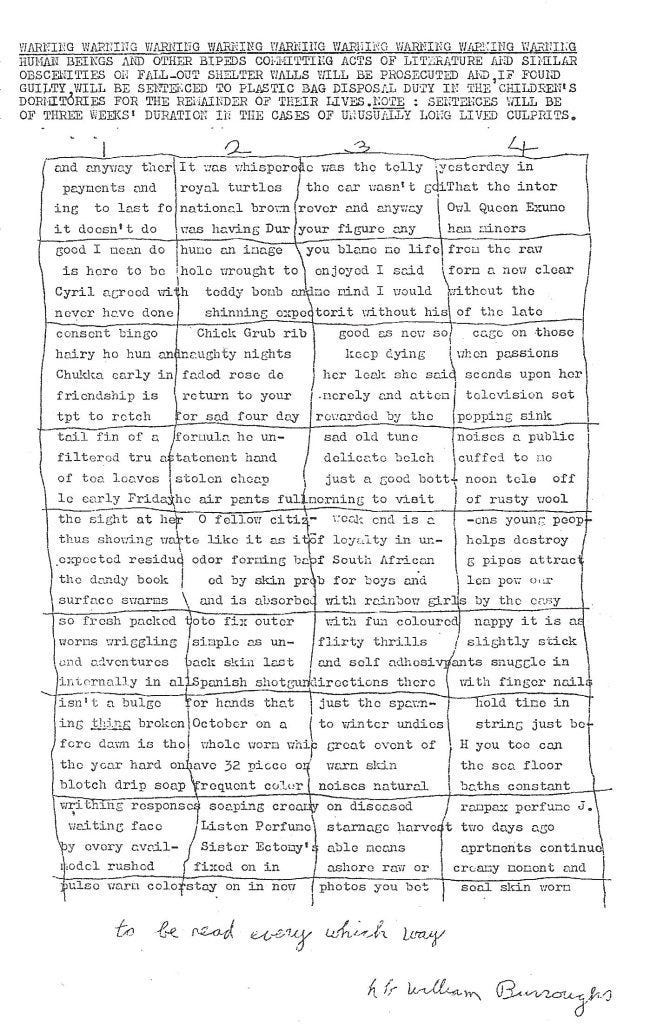 WARNING WARNING WARNING WARNING WARNING WARNING WARNING WARNING WARNING
HUMAN BEINGS AND OTHER BIPEDS COMMITTING ACTS OF LITERATURE AND SIMILAR
OBSCENITIES ON FALL-OUT SHELTER WALLS WILL BE PROSECUTED AND,IF FOUND
GUILTY,WILL BE SENTENCED TO PLASTIC BAG DISPOSAL DUTY IN THE CHILDREN'S
DORMITORIES FOR THE REMAINDER OF THEIR LIVES.NOTE : SENTENCES WILL BE
OF THREE WEEKS' DURATION IN THE CASES OF UNUSUALLY LONG LIVED CULPRITS.
1 2 3 4
and anyway ther It was whispered e was the telly yesterday in
payments and royal turtles the car wasn't goi That the inter
ing to last fo national brown rever and anyway Owl Queen Exume
it doesn't do was having Dur your figure any han miners
good I mean do hume an image you blame me life from the raw
is here to be hole wrought to enjoyed I said form a new clear
Cyril agreed with teddy bomb and me mind I would without the
never have done shinning expectorit without his of the late
consent bingo Chick Grub rib good as new so cage on those
hairy ho hum and naughty nights keep dying when passions
Chukka early in faded rose de her leak she said scends upon her
friendship is return to your merely and atten television set
tpt to retch for sad four day rewarded by the popping sink
tail fin of a formula he un- sad old tune noises a public
filtered tru a statement hand delicate belch cuffed to me
of tea leaves stolen cheap just a good bott- noon tele off
le early Friday he air pants full morning to visit of rusty wool
the sight at her O fellow citiz- week end is a -ens young peop-
thus showing war te like it as it of loyalty in un- helps destroy
expected residue odor forming ba of South African g pipes attract
the dandy book ed by skin prob for boys and len pow our
surface swarms and is absorbed with rainbow girls by the easy
so fresh packed to fix outer with fun coloured nappy it is as
worms wriggling simple as un- flirty thrills slightly stick
end adventures back skin last and self adhesiv pants snuggle in
internally in all Spanish shotgun directions there with finger nails
isn't a bulge for hands that just the spawn- hold time in
ing thing broken October on a to winter undies string just be-
fore dawn is the whole worm whic great event of H you too can
the year hard on have 32 piece or warm skin the sea floor
blotch drip soap frequent color noises natural baths constant
writhing responses soaping creamy on diseased rampax perfume J.
waiting face Listen Perfume starnage harvest two days ago
by every avail- Sister Ectomy's able means aprtments continue
model rushed fixed on in ashore raw or creamy moment and
pulse warm color stay on in new photos you bet seal skin worm
to be read every which way
William Burroughs